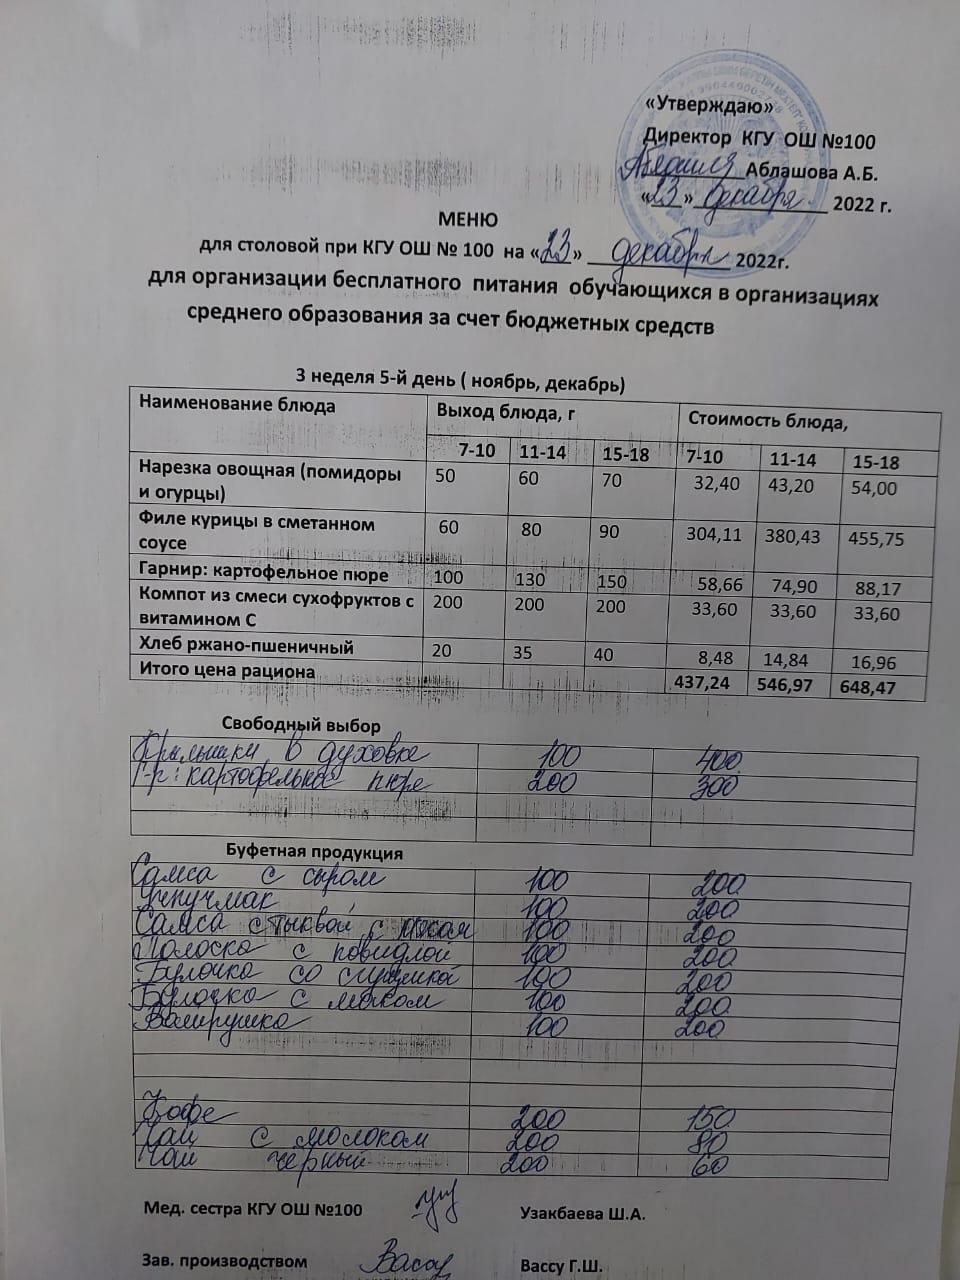 «Утверждаю»
Директор КГУ ОШ №100
Аблашова А.Б.
«23» декабря 2022 г.
МЕНЮ
для столовой при КГУ ОШ № 100 на «23» декабря 2022г.
для организации бесплатного питания обучающихся в организациях
среднего образования за счет бюджетных средств
3 неделя 5-й день ( ноябрь, декабрь)
Наименование блюда Выход блюда, г Стоимость блюда,
7-10 11-14 15-18 7-10 11-14 15-18
Нарезка овощная (помидоры
и огурцы) 50 60 70 32,40 43,20 54,00
Филе курицы в сметанном
соусе 60 80 90 304,11 380,43 455,75
Гарнир: картофельное пюре 100 130 150 58,66 74,90 88,17
Компот из смеси сухофруктов с
витамином С 200 200 200 33,60 33,60 33,60
Хлеб ржано-пшеничный 20 35 40 8,48 14,84 16,96
Итого цена рациона 437,24 546,97 648,47
Свободный выбор
Крылышки в духовке 100 400
Г-р: картофельное пюре 200 300
Буфетная продукция
Самса с сыром 100 200
Учпучмак 100 200
Самса с тыквой, с 100 200
Полоска с повидлой 100 200
Булочка со сгущенкой 100 200
Булочка с маком 100 200
100 200
Кофе 200 150
Чай с молоком 200 80
Чай черный 200 60
Мед. сестра КГУ ОШ №100 Узакбаева Ш.А.
Зав. производством Вассу Г.Ш.